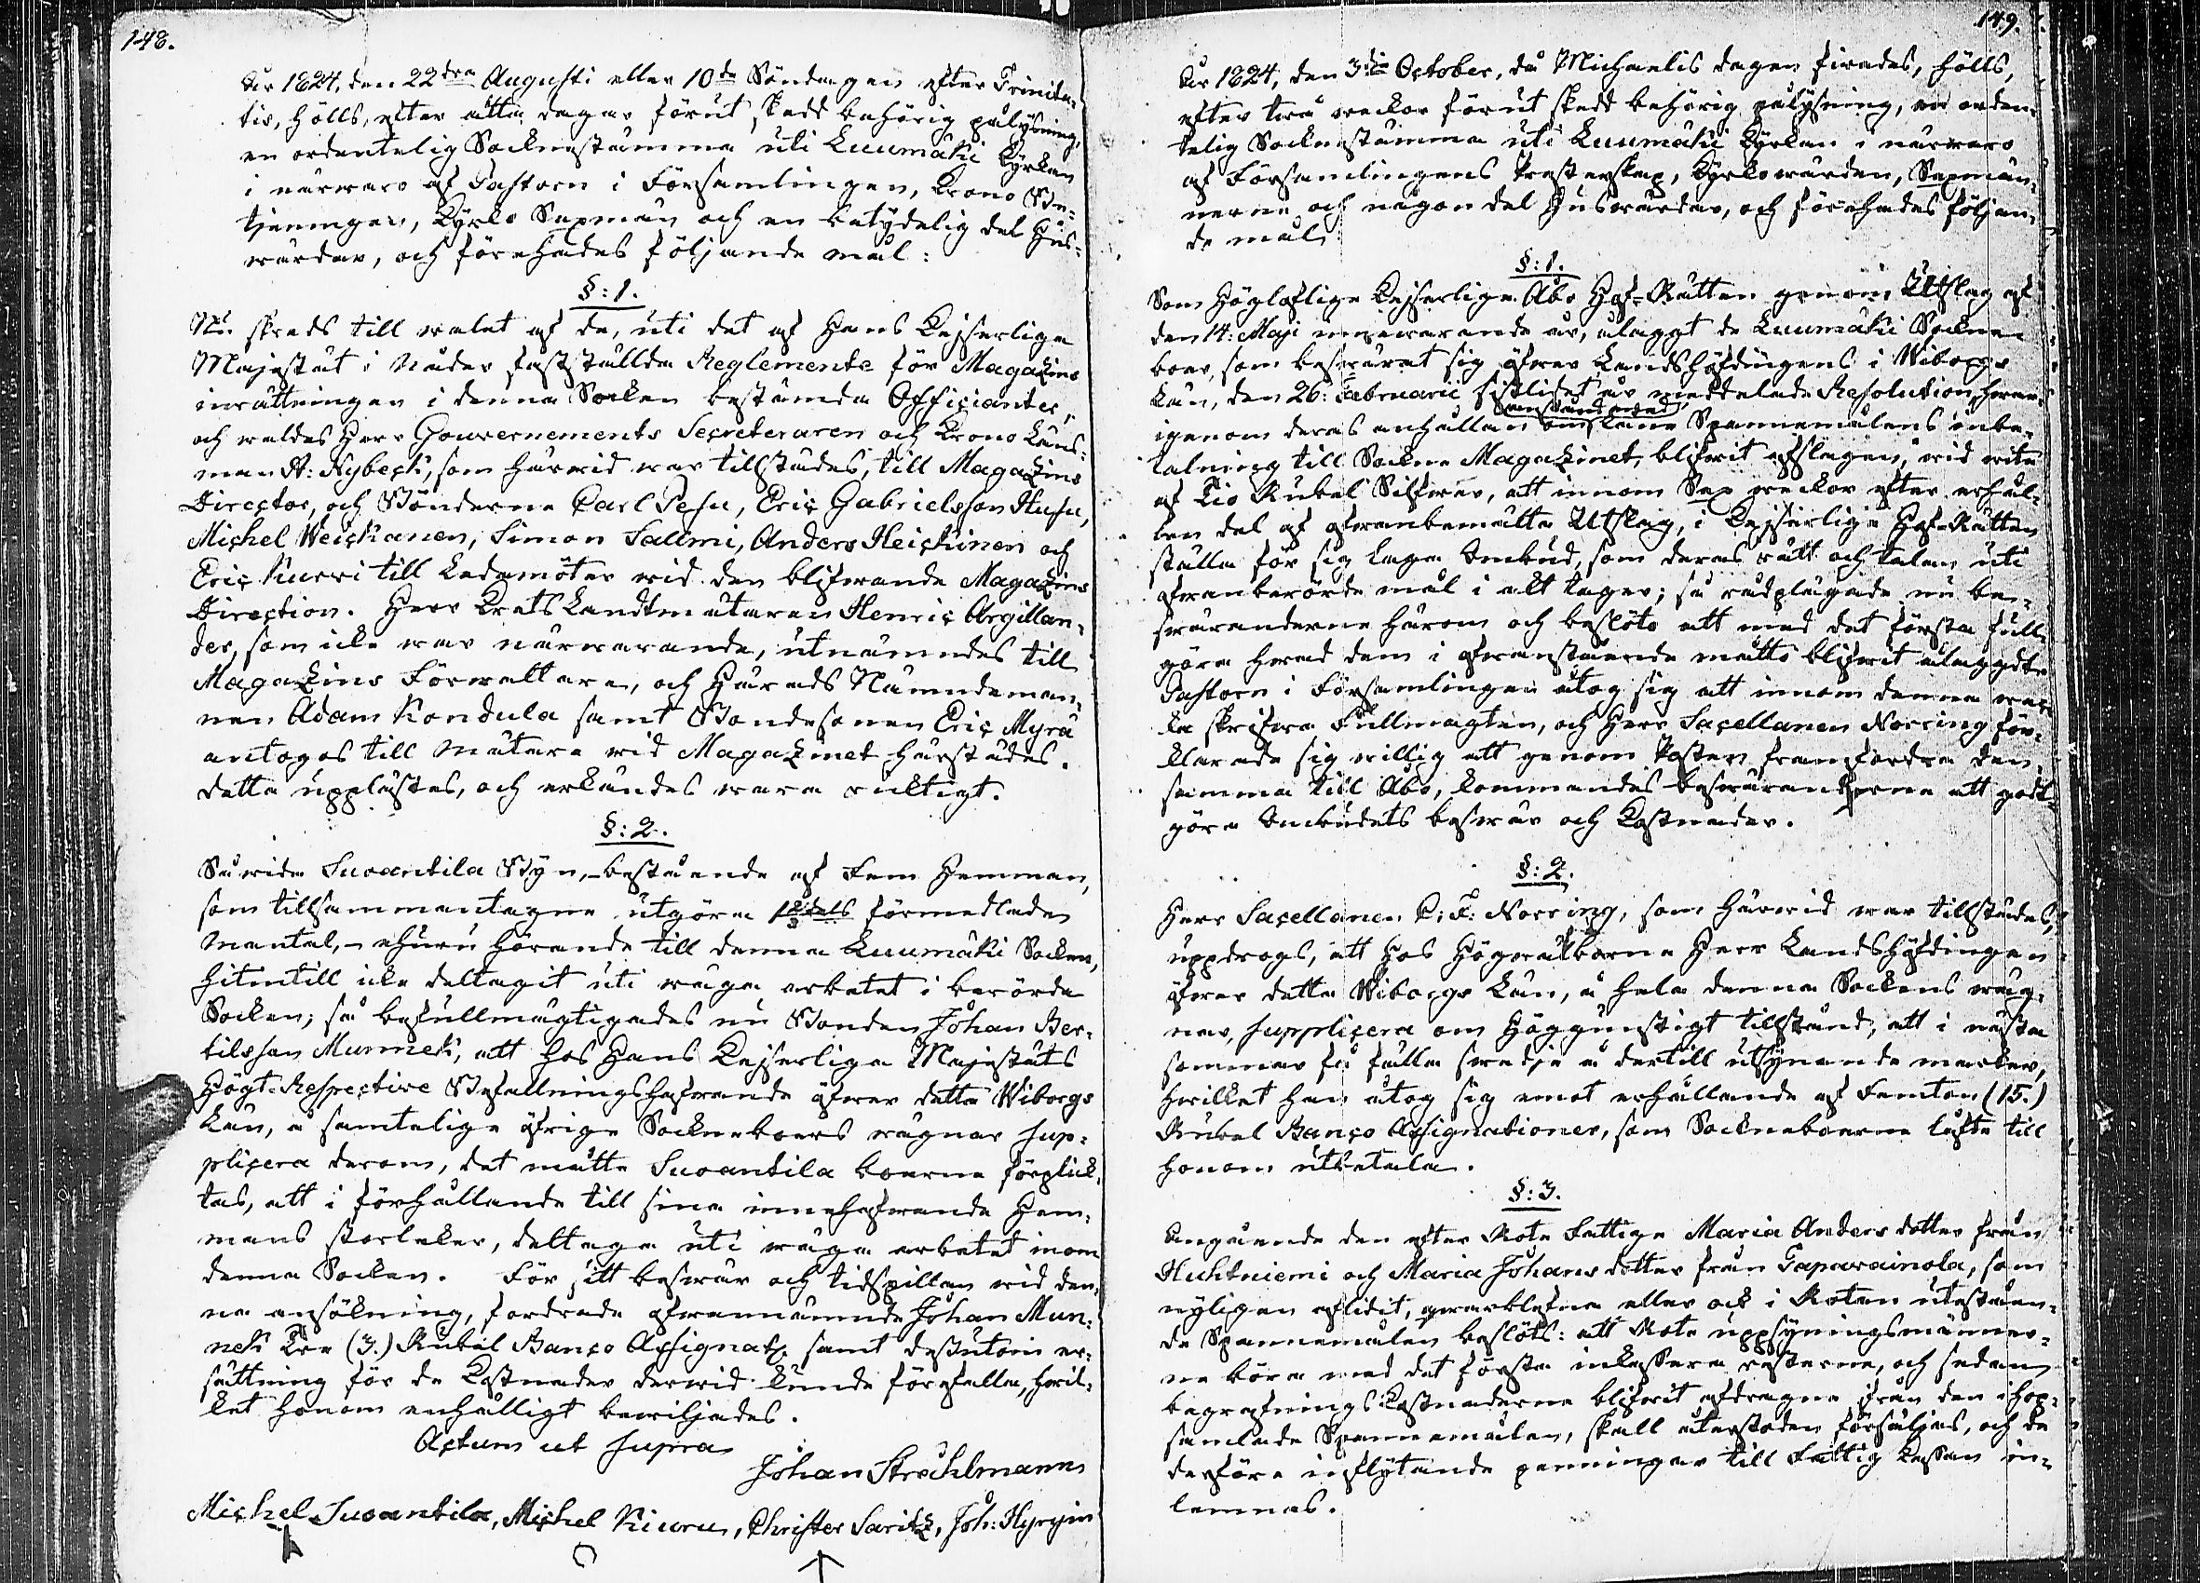 148.
År 1824, den 22dra Augusti eller 10de Söndagen efter Trinita-
tis, hölls, efter åtta dagar förut skedd behörig pålysning,
en ordentelig Socknestämma uti Luumäki Kyrkan
i närvaro af Pastorn i Församlingen, Krono Be-
tjeningen, Kyrko Sexmän och en betydelig del Hus-
wärdar, och förehades följande mål:
§: 1.
Nu skreds till walet af de, uti det af Hans Kejserliga
Majestät i Nåder fastställda Reglemente för Magazins
inrättningen i denna Socken bestämda Officianter,
och waldes Herr Gouvernements Secreteraren och Krono Läns-
man A: Nybeck, som härwid war tillstädes, till Magazins
Director, och Bönderne Carl Pesu, Eric Gabrielsson Husu,
Michel Weickanen, Simon Sallmi, Anders Heickinen och
Eric Kurri till Ledamöter wid den blifwande Magazins
Direction. Herr Krets Landtmätaren Henric Argillan-
der, som icke war närwarande, utnämndes till
Magazins Förwaltare, och Härads Nämndeman-
nen Adam Kondula samt Bondesonen Eric Myrä
antogos till Mätare wid Magazinet härstädes.
Detta upplästes, och erkändes wara richtigt.
§: 2.
Såwida Suoantila By, - bestående af Fem Hemman,
som tillsammantagne utgöra 1 2/3 dels förmedlade
Mantal, - ehuru hörande till denna Luumäki Socken,
hitintill icke deltagit uti wäga arbetet i berörde
Socken; så befullmägtigades nu Bonden Johan Ber-
tilsson Munnek, att hos Hans Kejserliga Majestäts
Högt-Respective Befallningshafwande öfwer detta Wiborgs
Län, å samtelige öfrige Sockneboers wägnar sup-
plicera derom, det måtte Suoantila boerne förplick-
tas, att i förhållande till sina innehafwande Hem-
mans storleker, deltaga uti wäga arbetet inom
denna Socken. För sitt beswär och tidspillan wid den-
na ansökning, fordrade ofwannämnde Johan Mun-
nek Tre (3.) Rubel Banco Assignat: samt dessutom er-
sättning för de Kostnader derwid kunde förefalla, hwil-
ket honom enhälligt bewiljades.
Actum ut supra
Johan Strahlmann
Michel Suoantila, Michel Kiuru, Christer Saritz, Joh: Hyryin
149.
År 1824, den 3die October, då Michaelis dagen firades, hölls,
efter twå weckor förut skedd behörig pålysning, en orden-
telig Socknestämma uti Luumäki Kyrkan i närwaro
af Församlingens Presterskap, Kyrkowärden, Sexmän-
nerne och någon del Huswärdar, och förehades följan-
de mål:
§: 1.
Som Högloflige Kejserlige Åbo Hof-Rätten genom Utslag af
den 14: Maji innewarande år, ålaggt de Luumäki Sockne
boer, som beswärat sig öfwer Landshöfdingens i Wiborgs
Län, den 26: Februarii sistlidet år meddelade Resolution, hwar-
anstånd med
igenom deras anhållan om låne Spannemålens inbe-
talning till Sockne Magazinet, blifwit afslagen, wid wite
af Tio Rubel Silfwer, att innom Sex weckor efter erhål-
len del af ofwanbemälte Utslag, i Kejserlige Hof-Rätten
ställa för sig laga Ombud, som deras rätt och talan uti
ofwanberörde mål i akt tager; så rådplägade nu be-
swäranderne härom och beslöto att med det första full-
göra hwad dem i ofwanstående måtto blifwit ålaggdt.
Pastorn i Församlingen åtog sig att innom denna wec-
ka skrifwa Fullmagten, och Herr Sacellanen Norring för-
klarade sig willig att genom Posten framfordra den-
samma till Åbo, kommandes beswäranderne att godt-
göra Ombudets beswär och Kostnader.
§: 2.
Herr Sacellanen C: F: Norring, som härwid war tillstädes,
uppdrogs, att hos Högwälborne Herr Landshöfdingen
öfwer detta Wiborgs Län, å hela denna Sockens wäg-
nar, supplicera om Höggunstigt tillstånd, att i nästa
sommar få fälla swedje å dertill utsynande marker,
hwilket han åtog sig emot erhållande af Femton (15.)
Rubel Banco Assignationer, som Sockneboerne lofte till
honom utbetala.
§: 3.
Angående den efter Rote Fattige Maria Anders dotter från
Huhtniemi och Maria Johans dotter från Taparainola, som
nyligen aflidit, qwarblefne eller ock i Roten uteståen-
de Spannemålen beslöts: att Rote uppsyningsmänner-
ne böra med det första inkassera resterne, och sedan
begrafnings Kostnaderne blifwit afdragne ifrån den ihop-
samlade Spannemålen, skall återstoden försäljas, och de
derföre inflytande penningar till Fattig Cassan in-
lemnas.